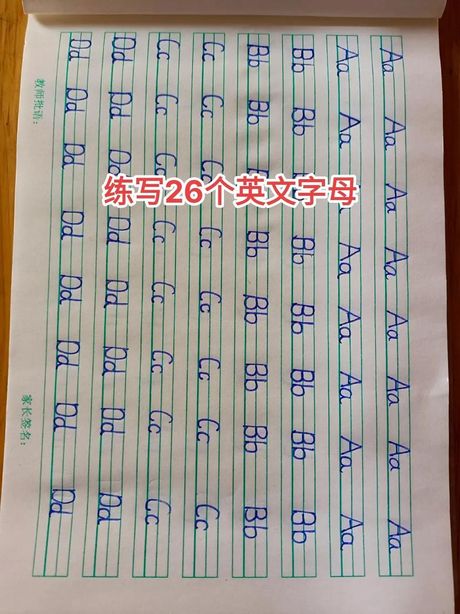 练写26个英文字母
Aa Aa Aa Aa Aa Aa Aa Aa
Aa Aa Aa Aa Aa Aa Aa
Bb Bb Bb Bb Bb Bb Bb
Bb Bb Bb Bb Bb Bb Bb
Cc Cc Cc Cc Cc Cc Cc Cc
Cc Cc Cc Cc Cc Cc Cc Cc
Dd Dd Dd Dd Dd Dd Dd Dd
Dd Dd Dd Dd Dd Dd Dd Dd
教师批语： 家长签名：